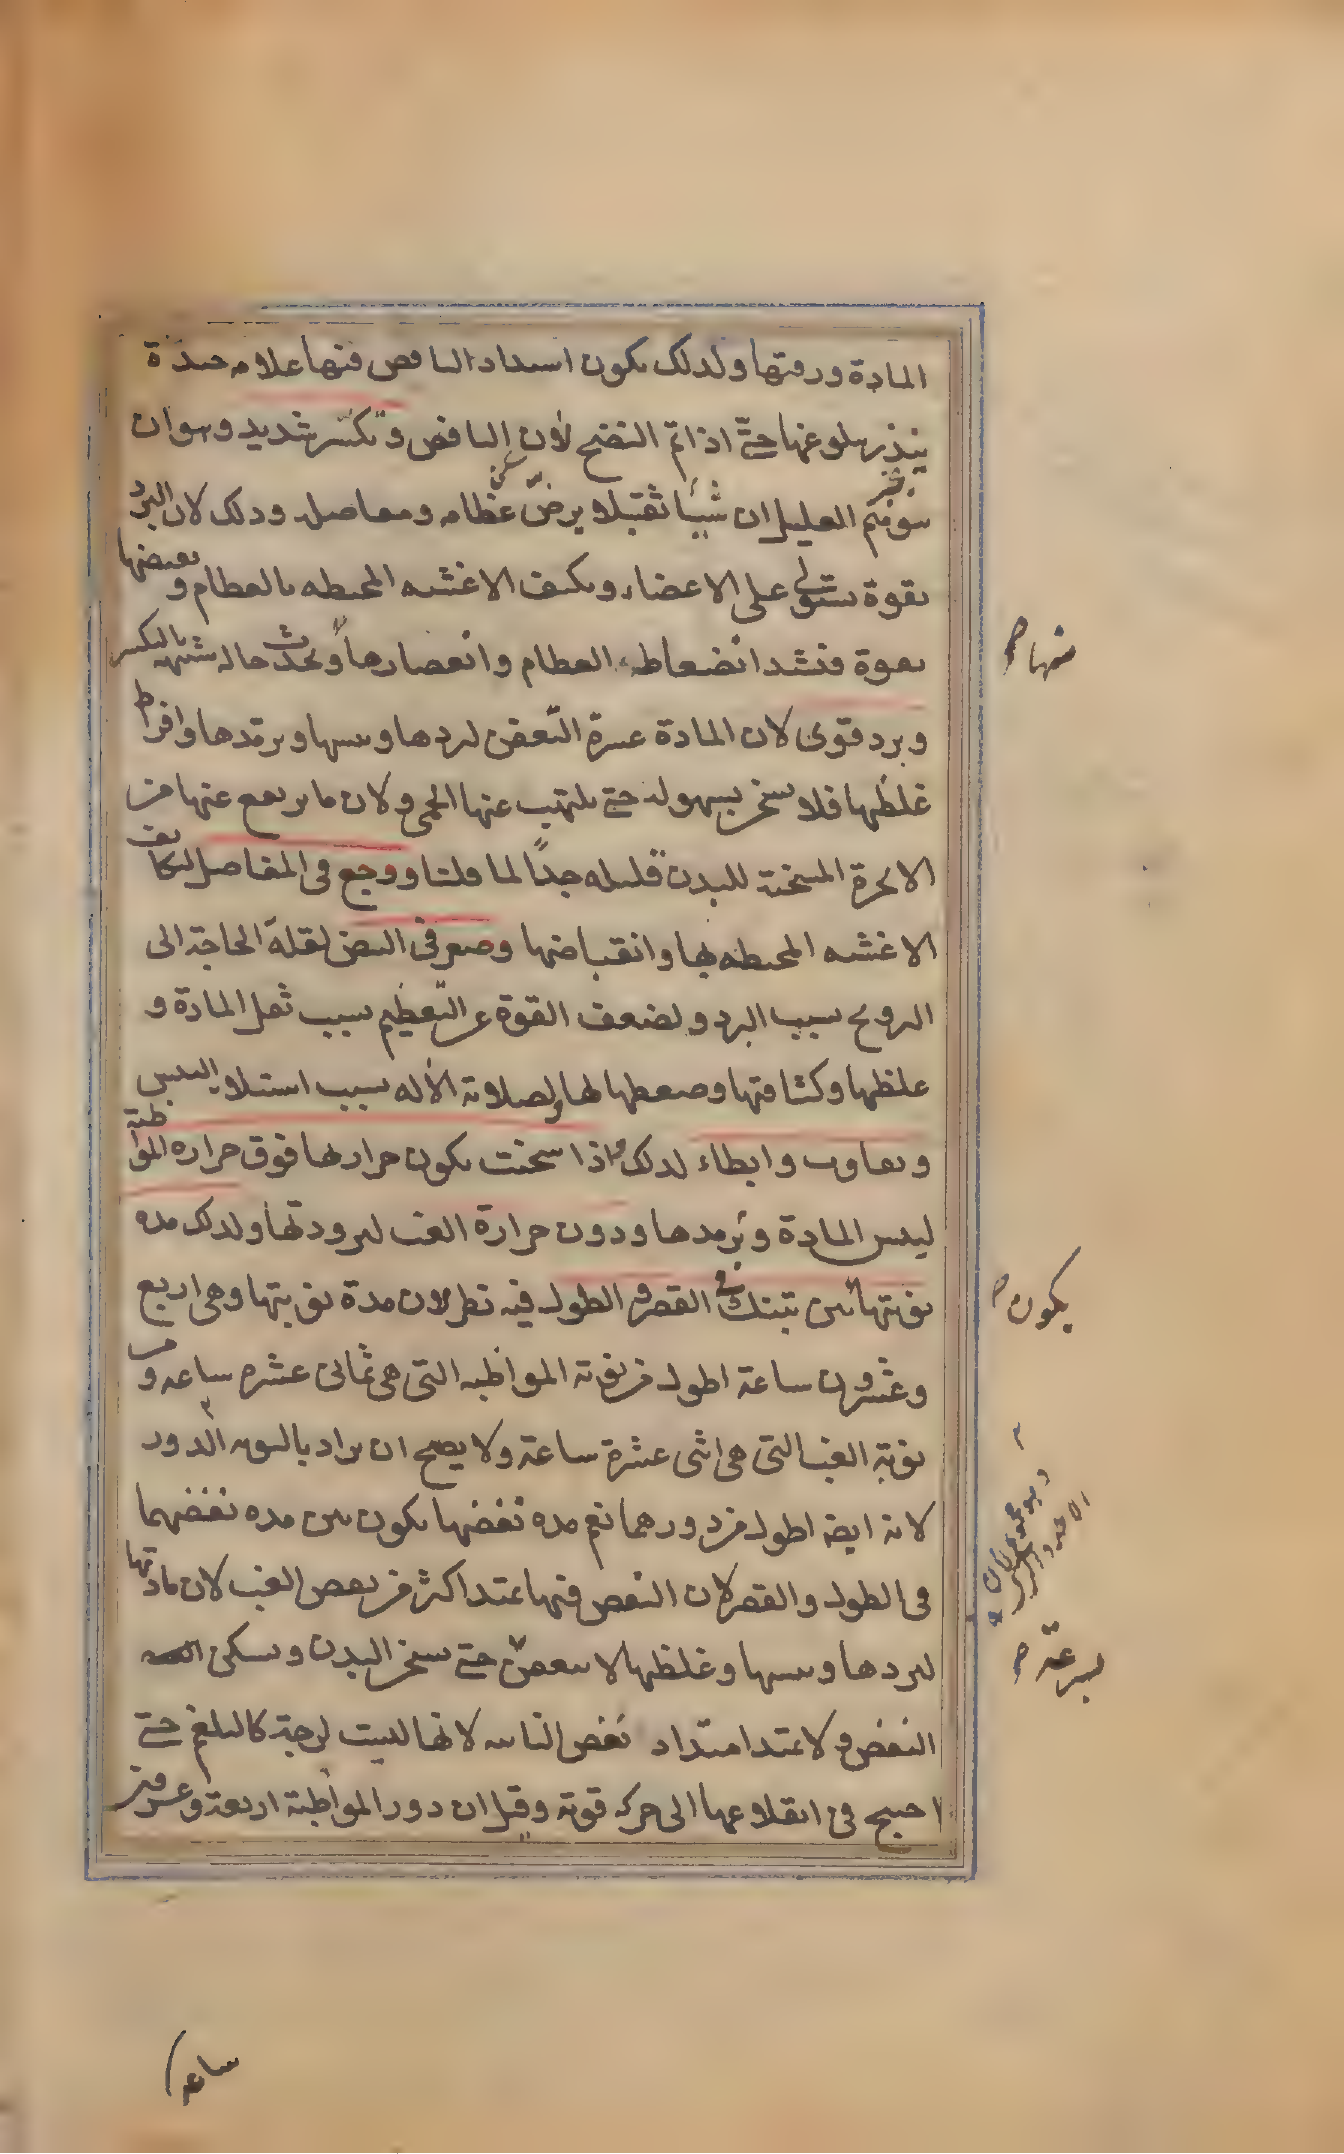 المادة ورقتها ولذلك يكون اشتداد النافض فيها علامة جيدة
ينذر بلوغها حتى اذا تم النضج لان النافض وتكسر شديد وهو ان
يتوهم العليل ان شيئا ثقيلا يرض عظامه ومفاصله وذلك لان البرد
بقوة يستولى على الاعضاء ويكثف الاغشية المحيطة بالعظام و يقبضها
بقوة فيشتد انضغاط العظام وانعصارها ويحدث حالة شبيهة بالتكسر
وبرد قوى لان المادة عسرة التعفن لبردها ويبسها وبرمدها وافراط
غلظها فلا يسخن بسهولة حتى يلتهب عنها الحمى ولان ما يرتفع عنها من
الابخرة المسخنة للبدن قليلة جدا لما قلنا ووجع فى المفاصل لتكاثف
الاغشية المحيطة بها وانقباضها وصغر فى النبض لقلة الحاجة الى
الترويح بسبب البرد ولضعف القوة عن التعظيم بسبب ثقل المادة و
غلظها وكثافتها وضغطها لها ولصلابة الآلة بسبب استيلاء اليبس
وتفاوت وابطاء لذلك واذا سخنت يكون حرارتها فوق حرارة المواظبة
ليبس المادة وترمدها ودون حرارة الغب لبرودتها ولذلك مدة
نوبتها بين تينك فى القصر والطول فيه نظر لان مدة نوبتها وهى اربع
وعشرون ساعة اطول من نوبة المواظبة التى هى ثمانى عشرة ساعة و من
نوبة الغب التى هى اثنى عشرة ساعة ولا يصح ان يراد بالنوبة الدور
لانه ايضا اطول من دورهما نعم مدة نفضها يكون بين مدة نفضهما
فى الطول والقصر لان النفض فيها يمتد اكثر من نفض الغب لان مادتها
لبردها ويبسها وغلظها لا يتعفن حتى يسخن البدن ويسكن
النفض ولا يمتد امتداد نفض النائبة لانها ليست لزجة كالبلغم حتى
احتيج فى انقلاعها الى حركة قوية وقيل ان دور المواظبة اربعة وعشرون
منها صح
يكون صح
بسرعة صح
ساعة